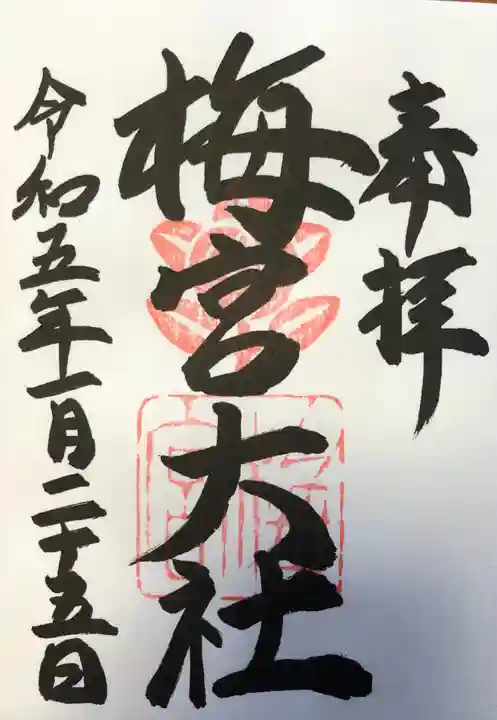 奉拝
梅宮大社
令和五年十一月二十五日